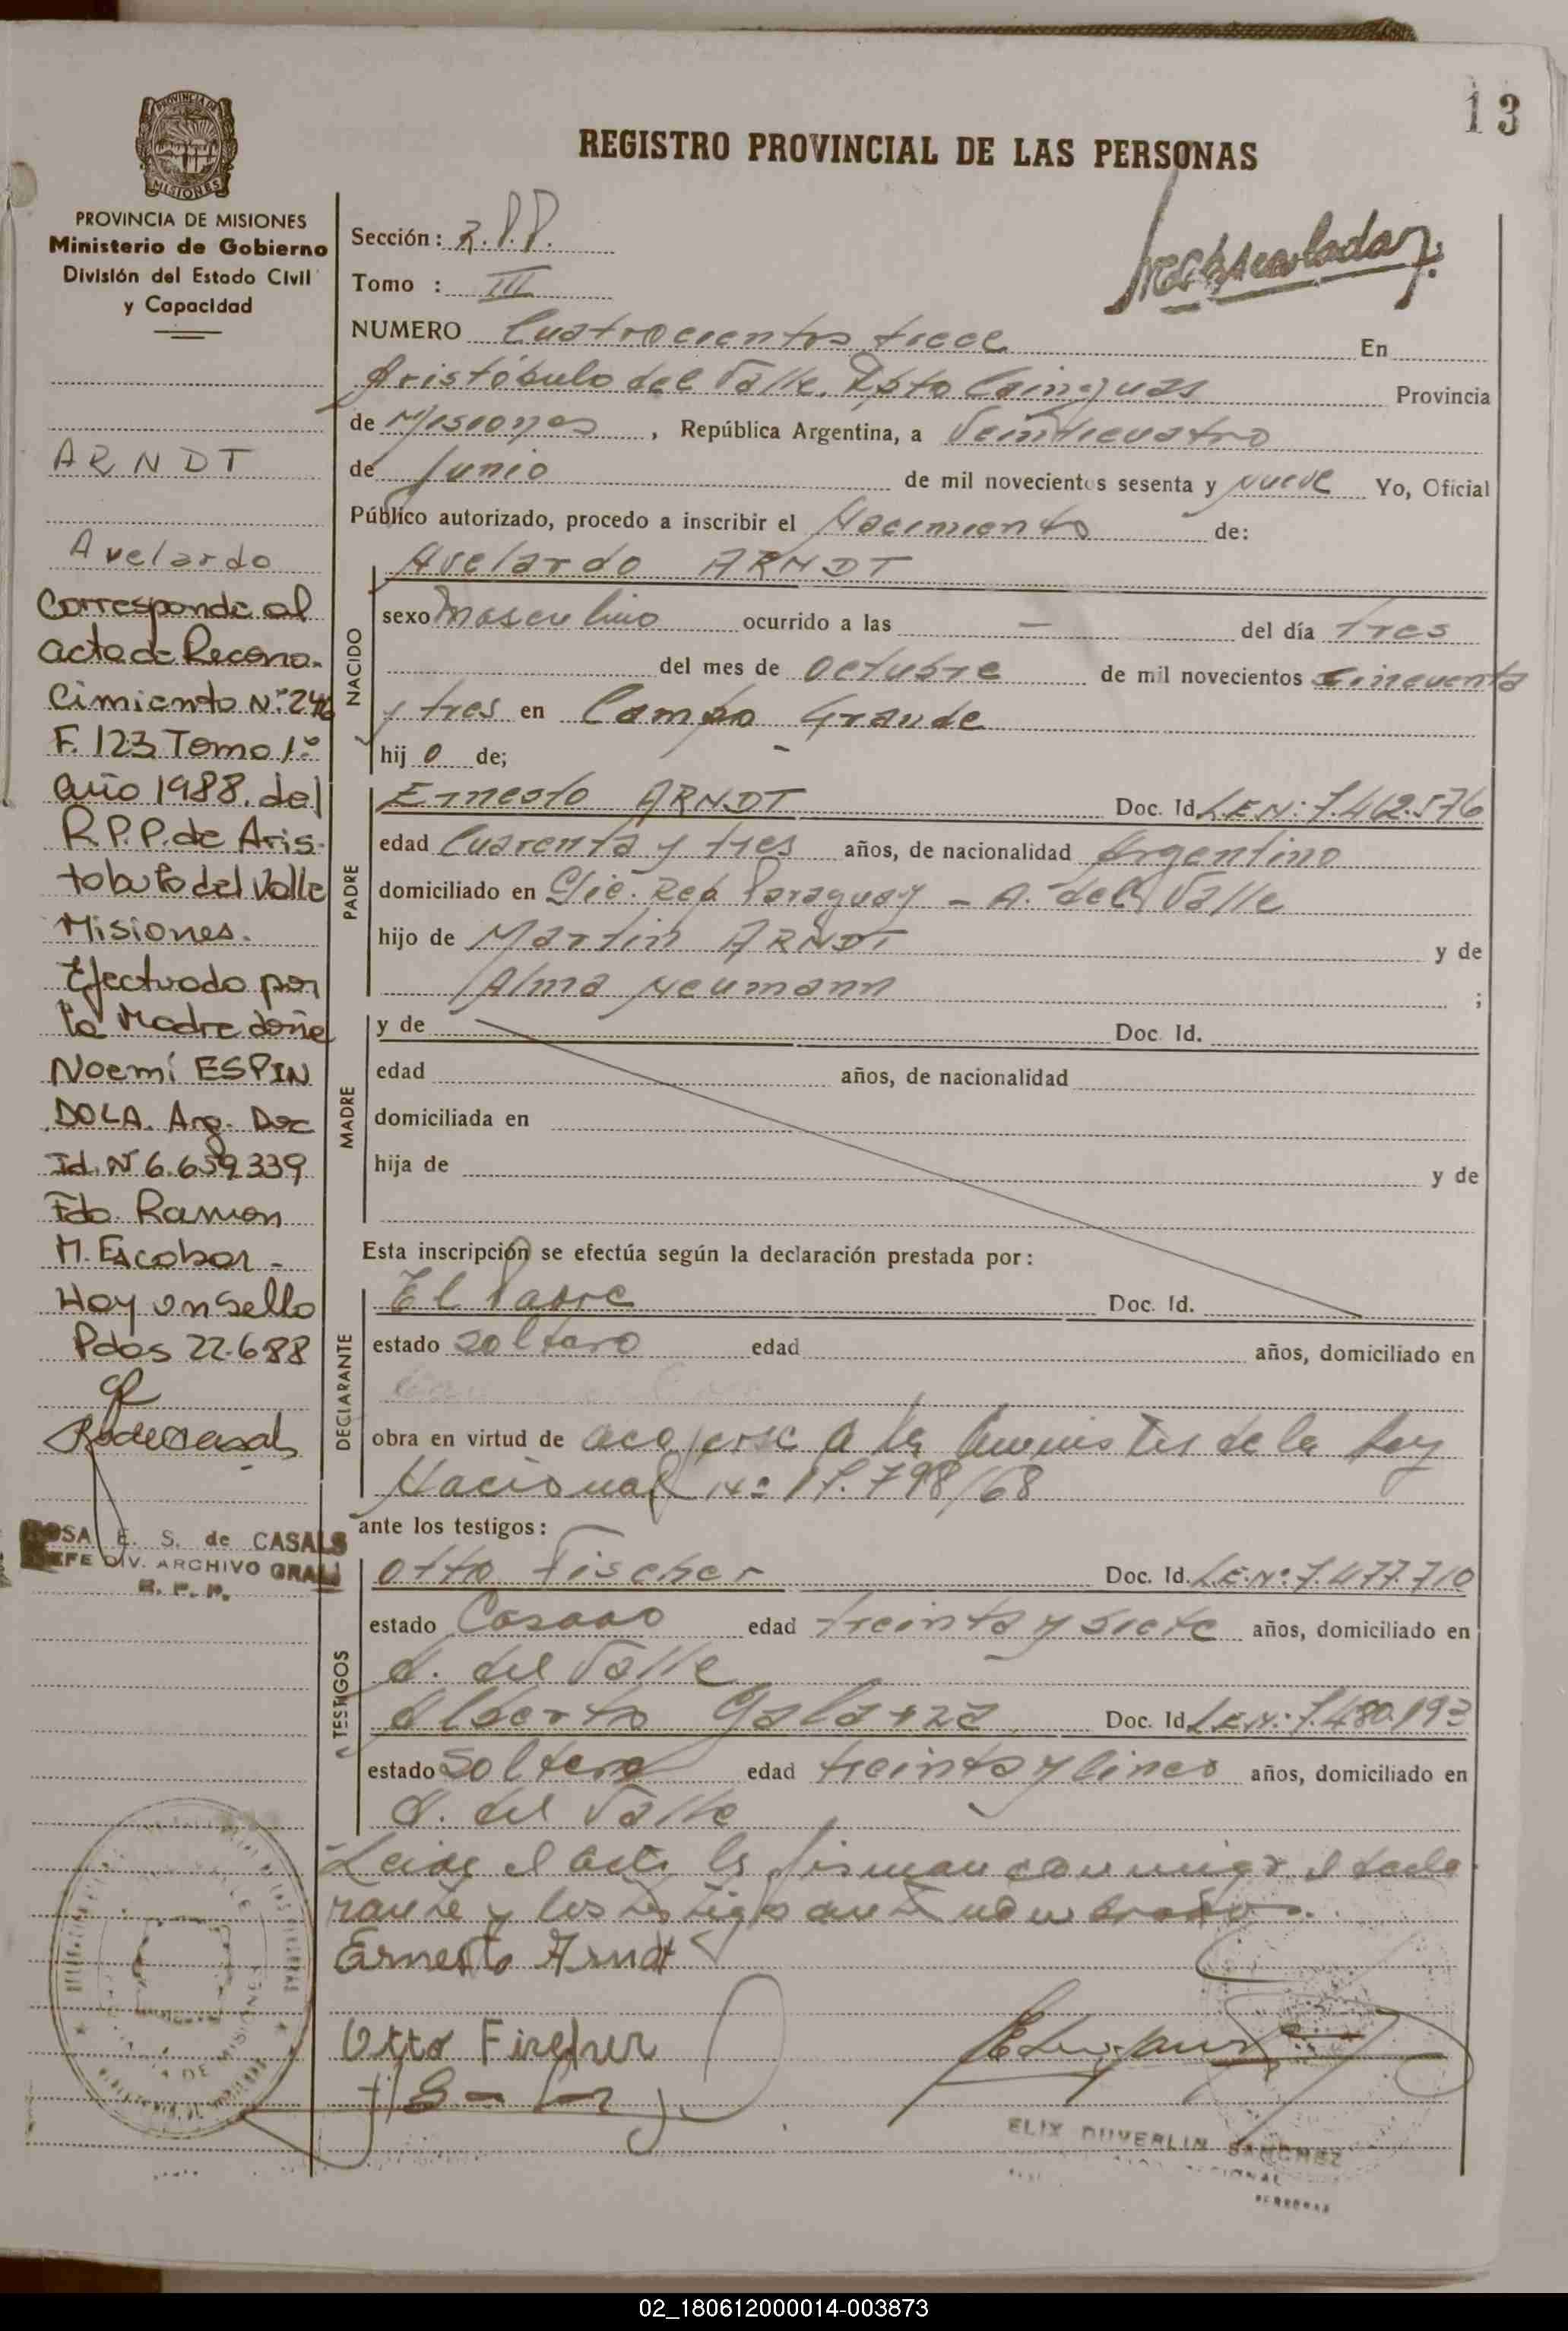 13
REGISTRO PROVINCIAL DE LAS PERSONAS
PROVINCIA DE MISIONES
PROVINCIA DE MISIONES
Ministerio de Gobierno
División del Estado Civil
y Capacidad
ARNDT
Avelardo
Corresponde al
acta de Recono-
cimiento Nº 246
F. 123 Tomo 1º
año 1988. del
R.P.P. de Aris-
tobulo del Valle
Misiones.
Efectuado por
la Madre doña
Noemí ESPIN
DOLA. Arg. Doc
Id. Nº 6.659.339
Fdo. Ramon
M. Escobar -
Hay un Sello
Pdas 22-6-88
ROSA E. S. de CASALS
JEFE DIV. ARCHIVO GRAL
R. P. P.
Sección: R.P.P.
Tomo : III
NUMERO Cuatrocientos trece En
Aristóbulo del Valle. Dpto Cainguas Provincia
de Misiones, República Argentina, a Veinticuatro
de Junio de mil novecientos sesenta y nueve Yo, Oficial
Público autorizado, procedo a inscribir el Nacimiento de:
Avelardo ARNDT
NACIDO
sexo Masculino ocurrido a las — del día tres
del mes de octubre de mil novecientos cincuenta
y tres en Campo Grande
hij o de;
PADRE
Ernesto ARNDT Doc. Id. L.E.Nº: 7.462.576
edad Cuarenta y tres años, de nacionalidad Argentino
domiciliado en Clle. Rep Paraguay - A. del Valle
hijo de Martin ARNDT y de
Alma Neumann ;
MADRE
y de Doc. Id.
edad años, de nacionalidad
domiciliada en
hija de y de
Esta inscripción se efectúa según la declaración prestada por:
DECLARANTE
El Padre Doc. Id.
estado soltero edad años, domiciliado en
obra en virtud de acojerse a la de la Ley
Nacional Nº 17.798/68
ante los testigos:
TESTIGOS
Otto Fischer Doc. Id. L.E.Nº: 7.477.710
estado Casado edad treinta y siete años, domiciliado en
A. del Valle
Alberto Galarza Doc. Id. L.E.Nº: 7.480.193
estado Soltero edad treinta y cinco años, domiciliado en
A. del Valle
Leida el acta la firman conmigo el decla
rante y los testigos antes nombrados.
Ernesto Arndt
Otto Fischer
ELIX DUVERLIN SANCHEZ
02_180612000014-003873